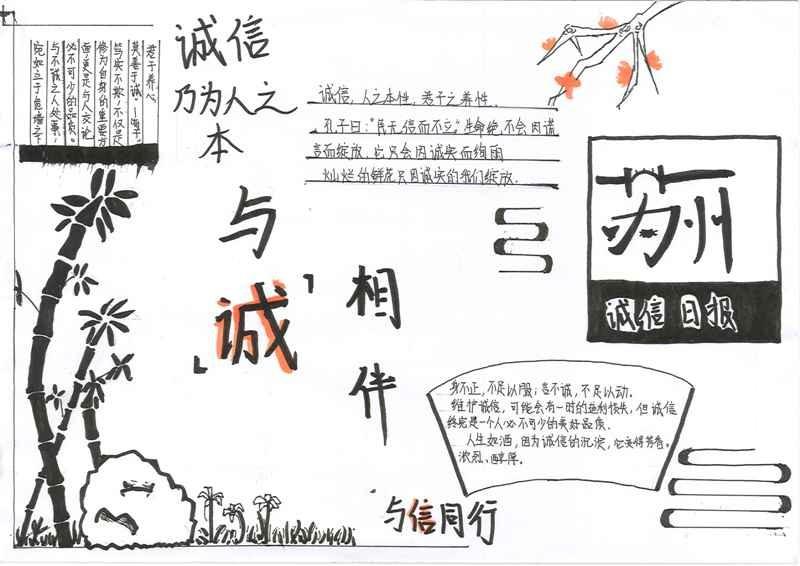 君子养心
莫善于诚！—荀子
笃实不欺，不仅是
修为自身的重要方
面，更是与人交论
必不可少的品质。
与不诚之人处事，
宛如立于危墙之下
诚信
乃为人之
本
诚信，人之本性，君子之养性.
孔子曰：“民无信而不立”。生命绝不会因谎
言而绽放，它只会因诚实而绚雨
灿烂的鲜花只因诚实的我们绽放.
苏州
诚信日报
与
「诚」
相
伴
身不正，不足以服；言不诚，不足以动.
维护诚信，可能会有一时的延利快失，但诚信
终究是一个人必不可少的美好品质.
人生如酒，因为诚信的沉淀，它变得芳香.
浓烈、醇厚.
与信同行